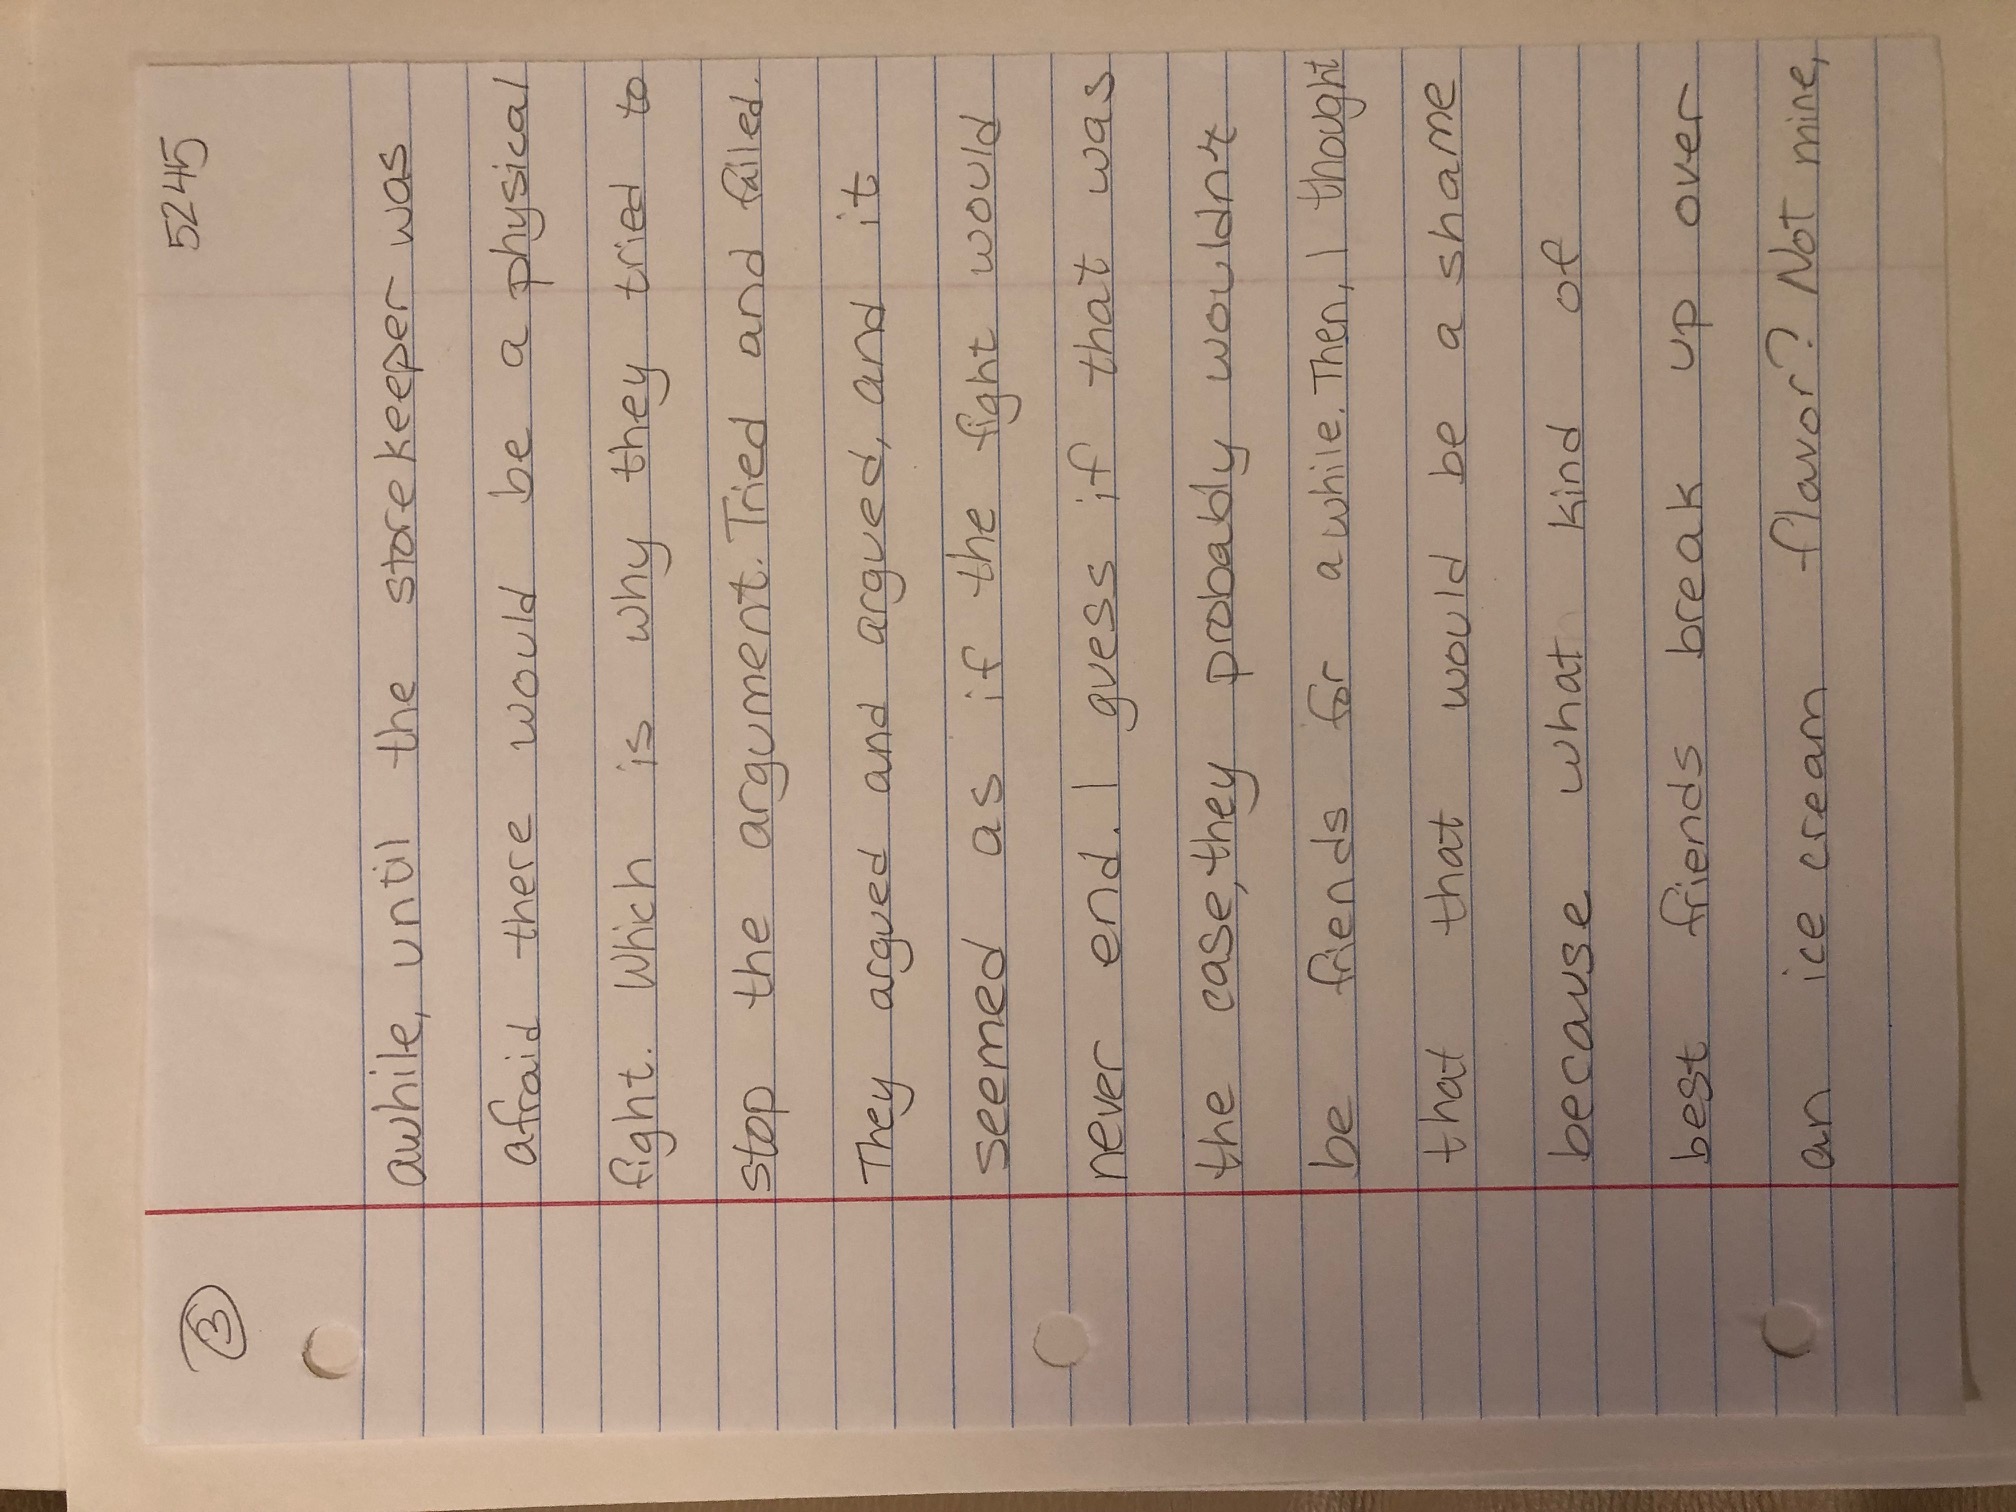 3
5245
awhile, until the storekeeper was
afraid there would be a physical
fight. Which is why they tried to
stop the argument. Tried and failed.
They argued and argued, and it
seemed as if the fight would
never end. I guess if that was
the case, they probably wouldn't
be friends for awhile. Then, I thought
that that would be a shame
because what kind of
best friends break up over
an ice cream flavor? Not mine,